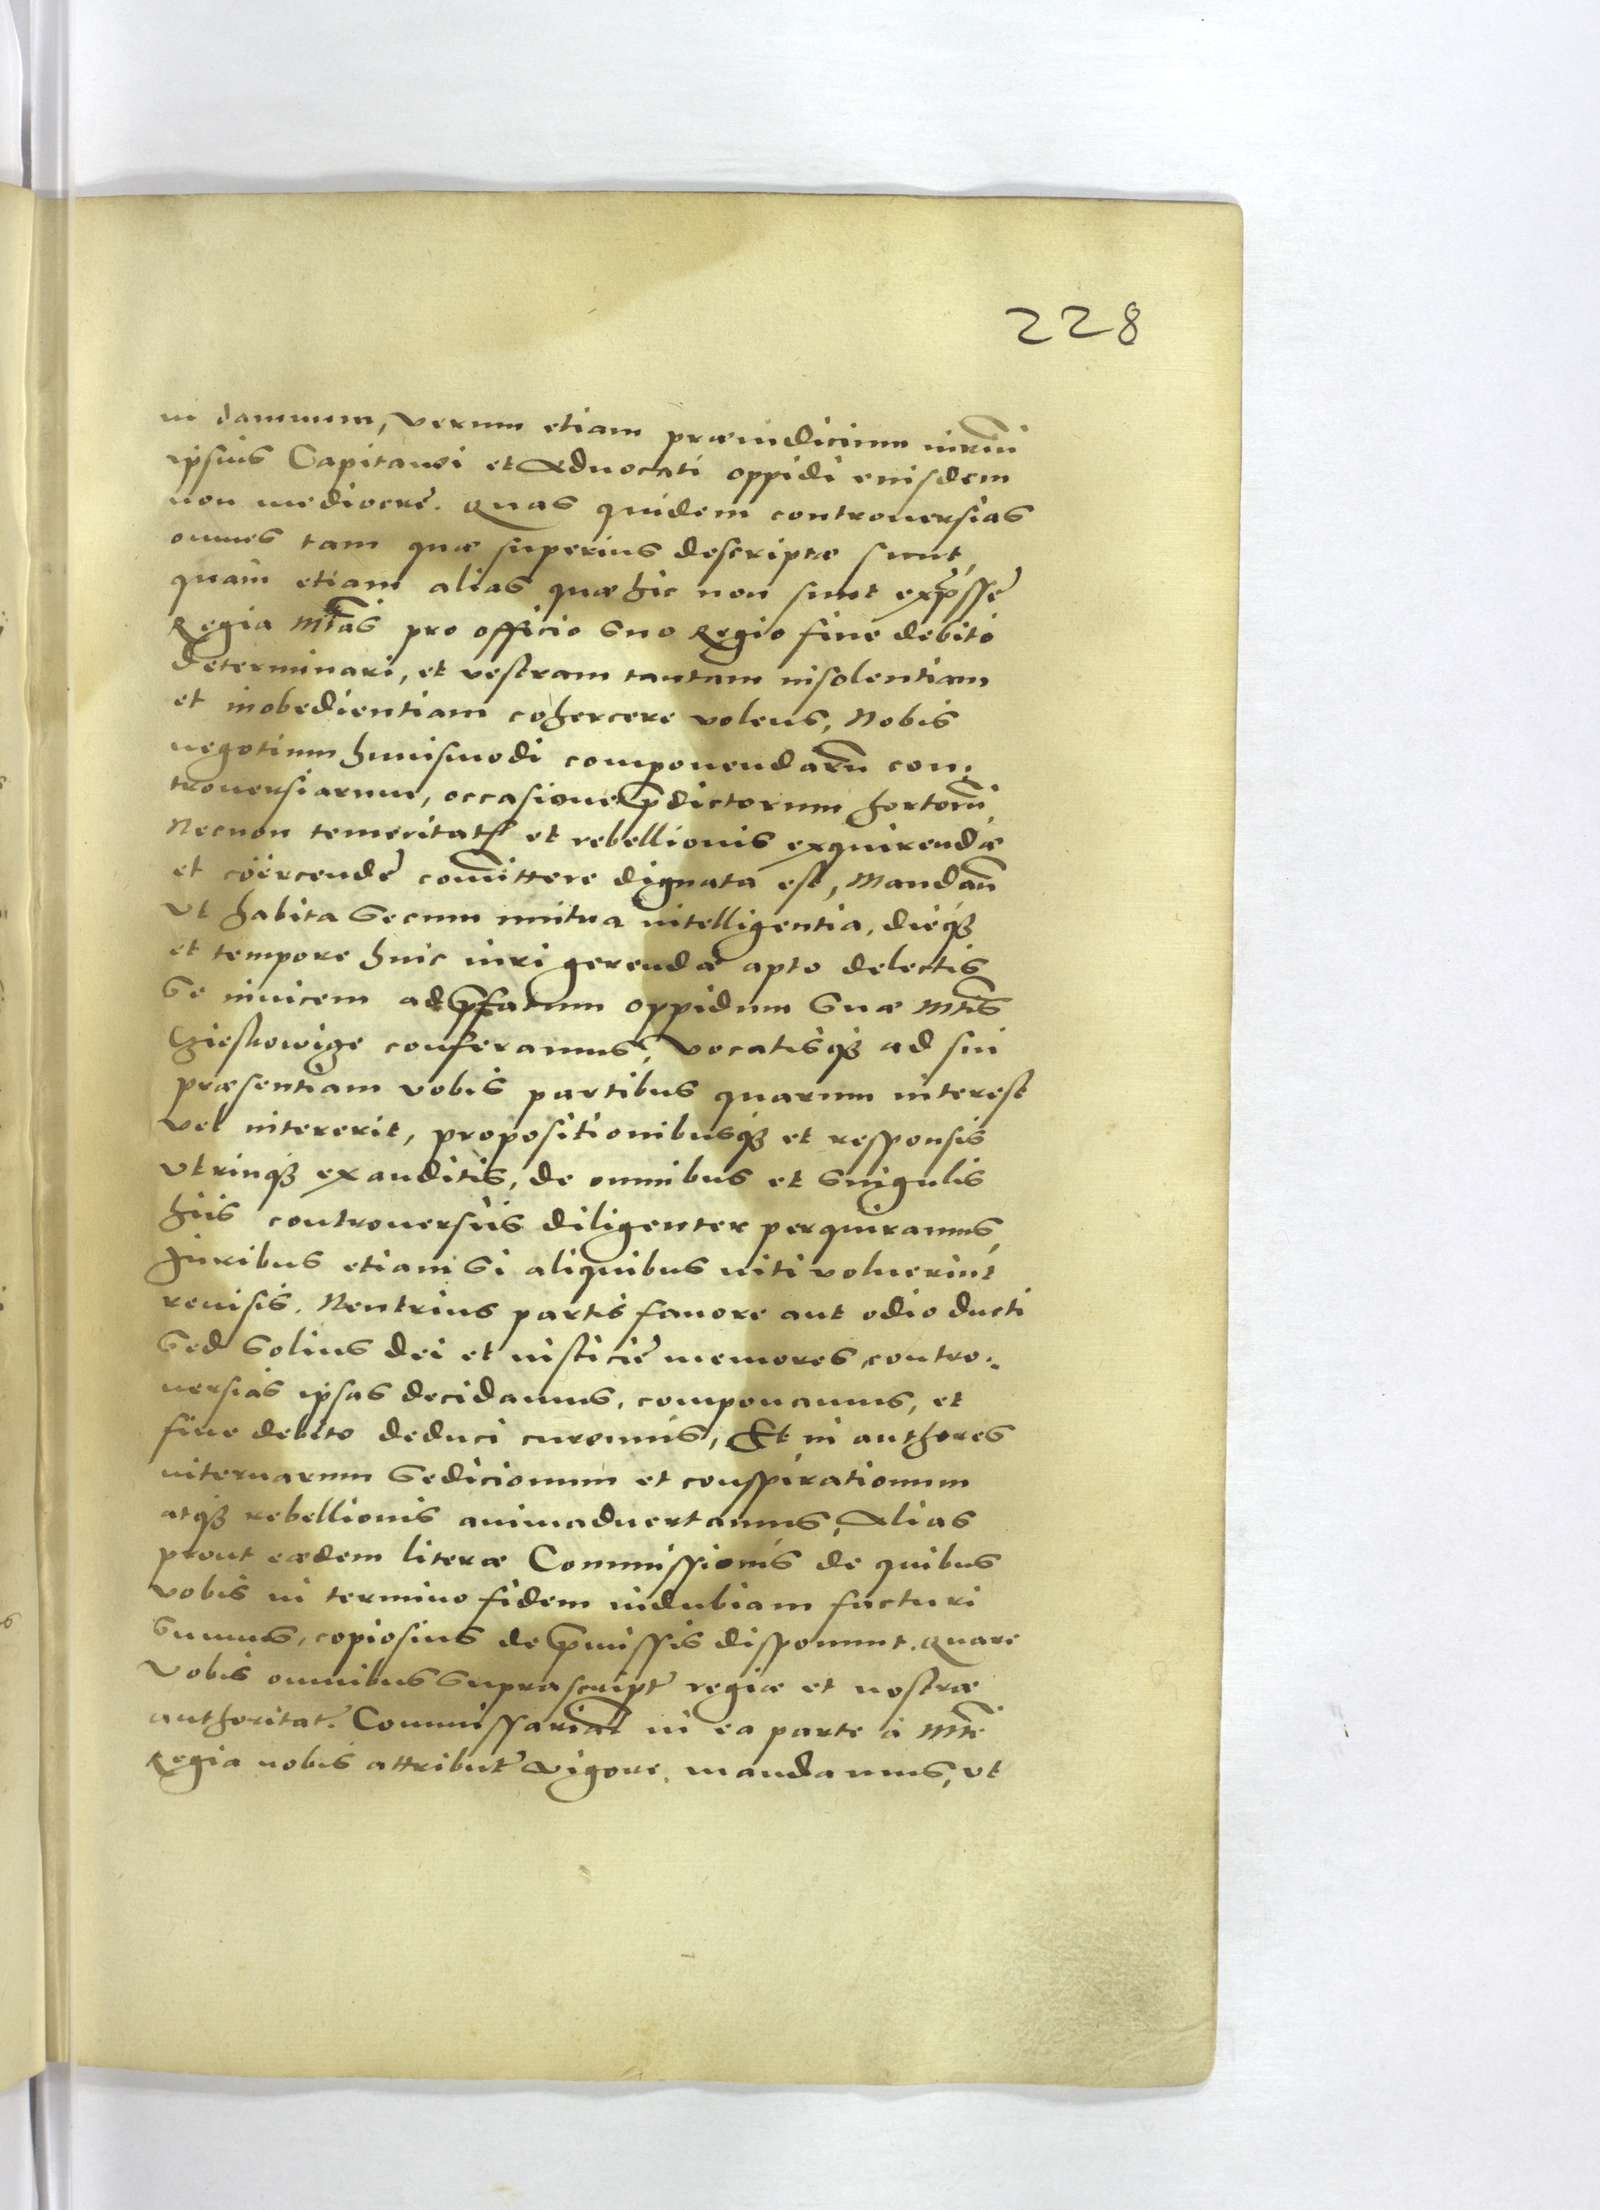 228
in damnum, verum etiam præiudicium iuriũ
ipsius Capitanei et Aduocati oppidi eiusdem
non mediocrẽ. Quas quidem controuersias
omnes tam quæ superius descriptæ sunt,
quàm etiam alias quæ hic non sunt exp̃ssę
Regia Mtas pro officio suo Regio fine debito
determinari, et vestram tantam insolentiam
et inobedientiam cohercere volens, Nobis
negotium huiusmodi componendarũ con:
trouersiarum, occasione p̃dictorum hortorũ,
Necnon temeritatis et rebellionis exquirendæ
et coërcendę com̃ittere dignata est, Mandan̄
Vt habita secum mutua intelligentia, dieq3
et tempore huic iuri gerendæ apto delectis
Se inuicem ad p̃fatum oppidum suæ Mtis
conferamus, vocatisq3 ad sui
præsentiam vobis partibus quarum interest
vel intererit, propositionibusq3 et responsis
vtrinq3 exauditis, de omnibus et singulis
hiis controuersiis diligenter perquiramus,
Iuribus etiam si aliquibus uiti voluerint
reuisis. Neutrius partis fauore aut odio ducti
Sed Solius dei et iusticię memores contro:
uersias ipsas decidamus, componamus, et
fine debito deduci curemus, Et in authores
internarum sedicionum et conspirationum
atq3 rebellionis animaduertamus, Alias
prout eædem literæ Commissionis de quibus
vobis in termino fidem indubiam facturi
sumus, copiosius de p̃missis disponunt. Quare
Vobis omnibus suprascript: regiæ et nostræ
authoritat: Commissarial: in ea parte à Mte
Regia nobis attribut: vigore, mandamus, vt